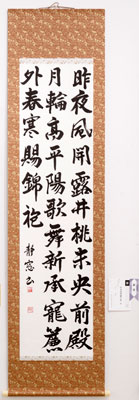 昨夜風開露井桃未央前殿
月輪高平陽歌舞新承寵簾
外春寒賜錦袍
静窓書